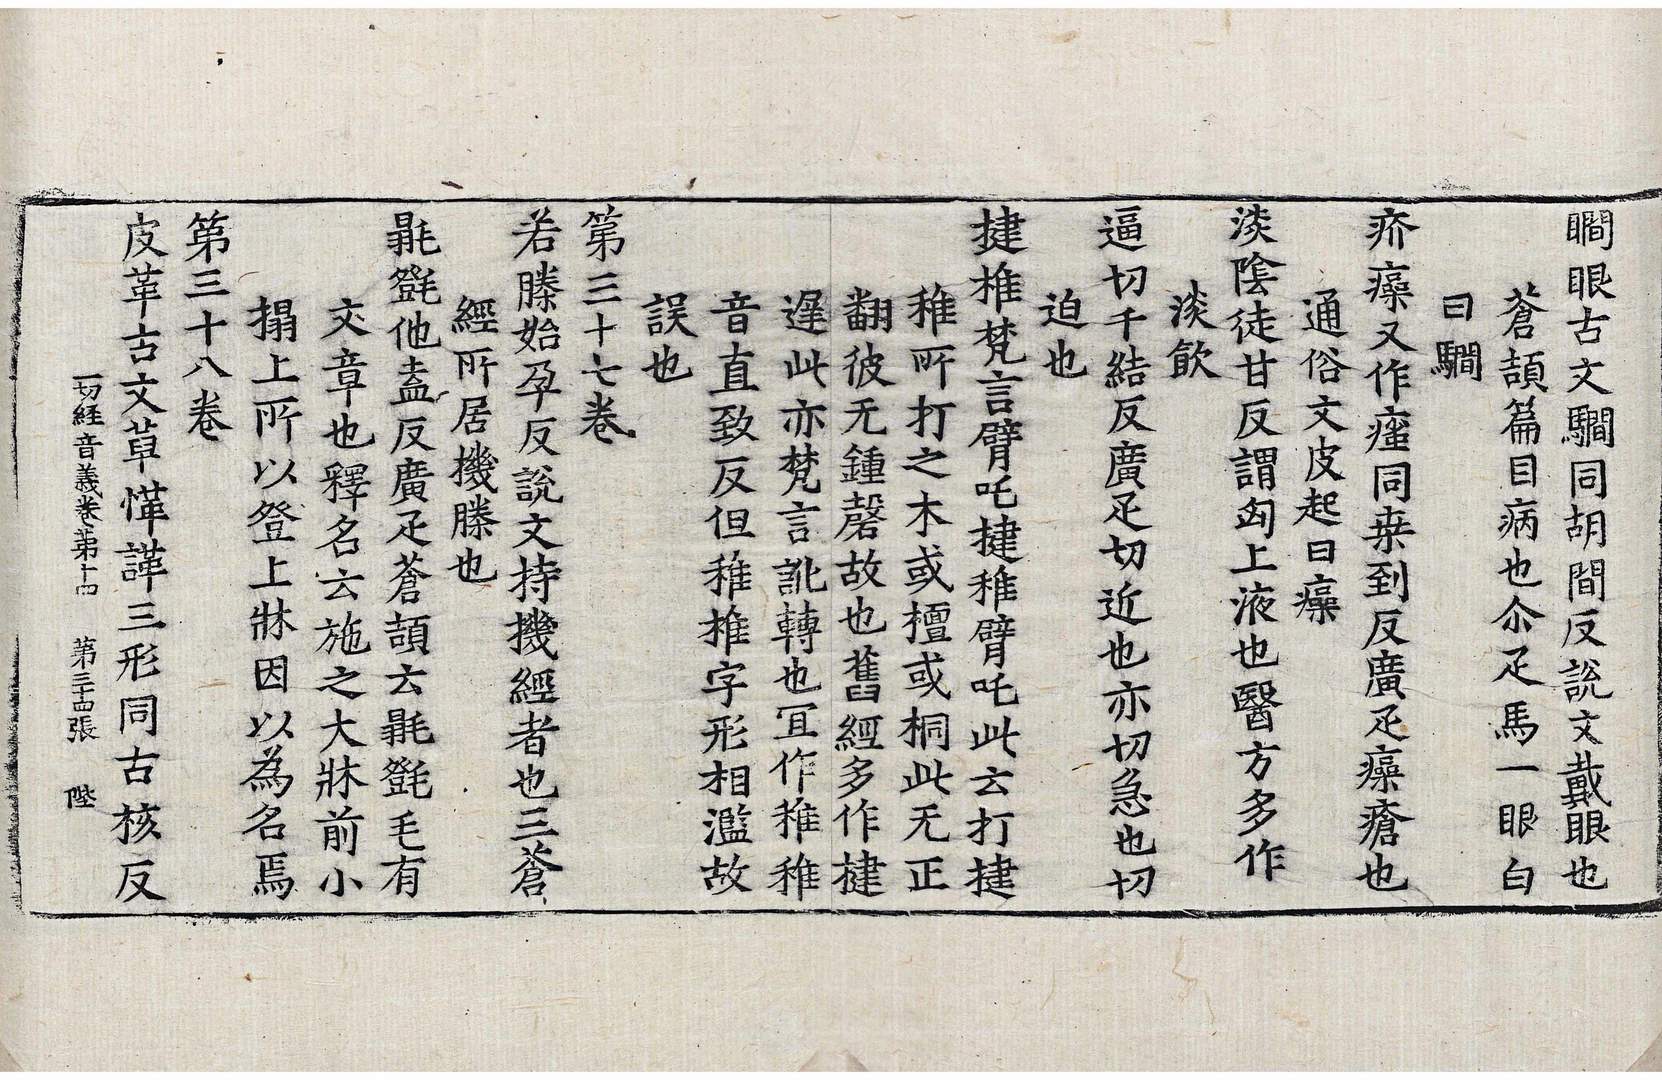 瞯眼古文騆同胡間反說文戴眼也
蒼頡篇目病也尒疋馬一眼白
曰瞯
疥癳又作瘙同桒到反廣疋癳瘡也
通俗文皮起曰癳
淡陰徒甘反謂匈上液也醫方多作
淡飲
逼切千結反廣疋切近也亦切急也切
迫也
揵椎梵言臂吒揵稚臂吒此云打揵
稚所打之木或檀或桐此无正
翻彼无鍾磬故也舊經多作揵
遟此亦梵言訛轉也冝作稚稚
音直致反但稚椎字形相濫故
誤也
第三十七卷
若縢始孕反說文持機經者也三蒼
經所居機縢也
毾㲪他盍反廣疋蒼頡云毾㲪毛有
文章也釋名云施之大牀前小
搨上所以登上牀因以為名焉
第三十八卷
皮革古文𠦶愅諽三形同古核反
一切經音義卷苐十四 第三十四張 陛